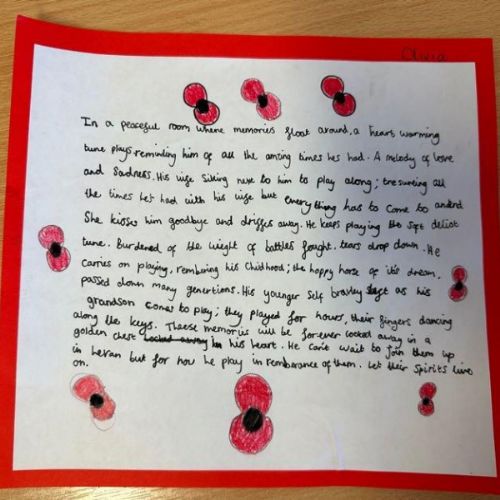 Olivia
In a peaceful room where memories float around, a heart warming
tune plays, reminding him of all the amzing times he had. A melody of love
and Sadness. His wife sitting next to him to play along; tresuring all
the times Let had with his wife but everything has to come to an end
She kisses him goodbye and drifts away. He keeps playing the soft delict
tune. Burdened of the wieght of battles fought, tears drop down. He
carries on playing, rembering his Childhood; the happy horse of it's dream,
passed down many genertions. His younger self bravley left as his
grandson comes to play; they played for hours, their fingers dancing
along the keys. Theese memoriis will be forever locked away in a
golden chest locked away in his heart. He can't wait to join them up
in hevan but for now he play in remberance of them. Let their Spirits live
on.